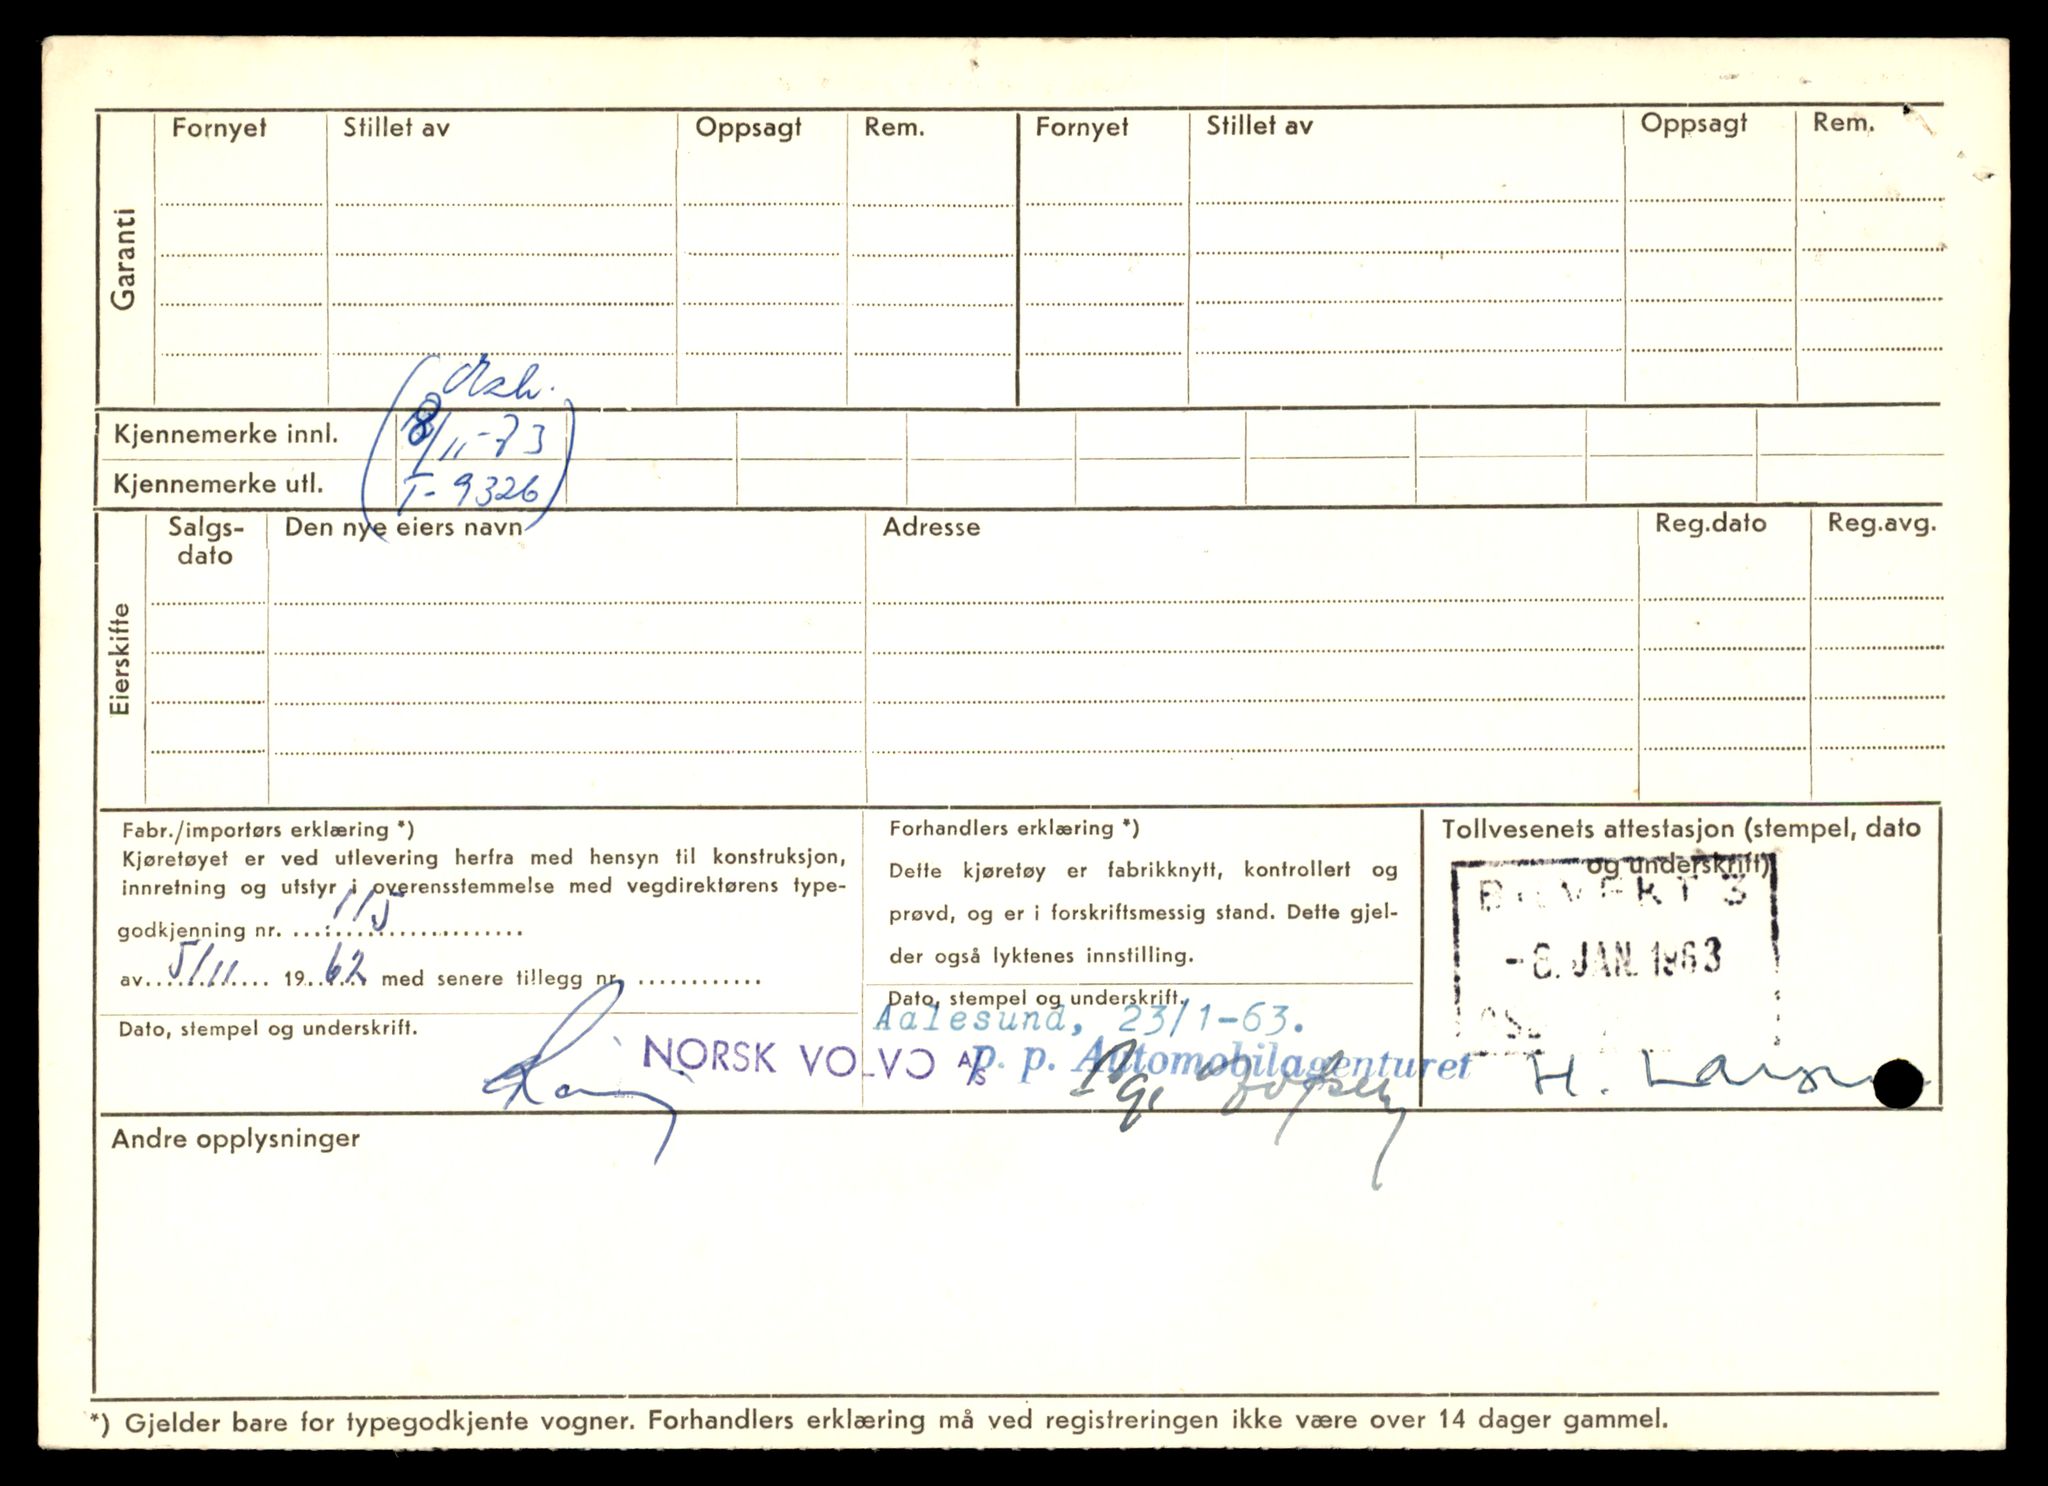 Garanti
Fornyet Stillet av Oppsagt Rem. Fornyet Stillet av Oppsagt Rem.
Kjennemerke innl. 8/11-73
Kjennemerke utl. T-9326
Eierskifte
Salgs-dato Den nye eiers navn Adresse Reg.dato Reg.avg.
Fabr./importørs erklæring *)
Kjøretøyet er ved utlevering herfra med hensyn til konstruksjon,
innretning og utstyr i overensstemmelse med vegdirektørens type-
godkjenning nr. 115
av 5/11 1962 med senere tillegg nr.
Dato, stempel og underskrift.
NORSK VOLVO A/S
Forhandlers erklæring *)
Dette kjøretøy er fabrikknytt, kontrollert og
prøvd, og er i forskriftsmessig stand. Dette gjel-
der også lyktenes innstilling.
Dato, stempel og underskrift.
Aalesund, 23/1-63.
p. p. Automobilagenturet
Tollvesenets attestasjon (stempel, dato
og underskrift)
-8. JAN. 1963
H. Larsen
Andre opplysninger
*) Gjelder bare for typegodkjente vogner. Forhandlers erklæring må ved registreringen ikke være over 14 dager gammel.